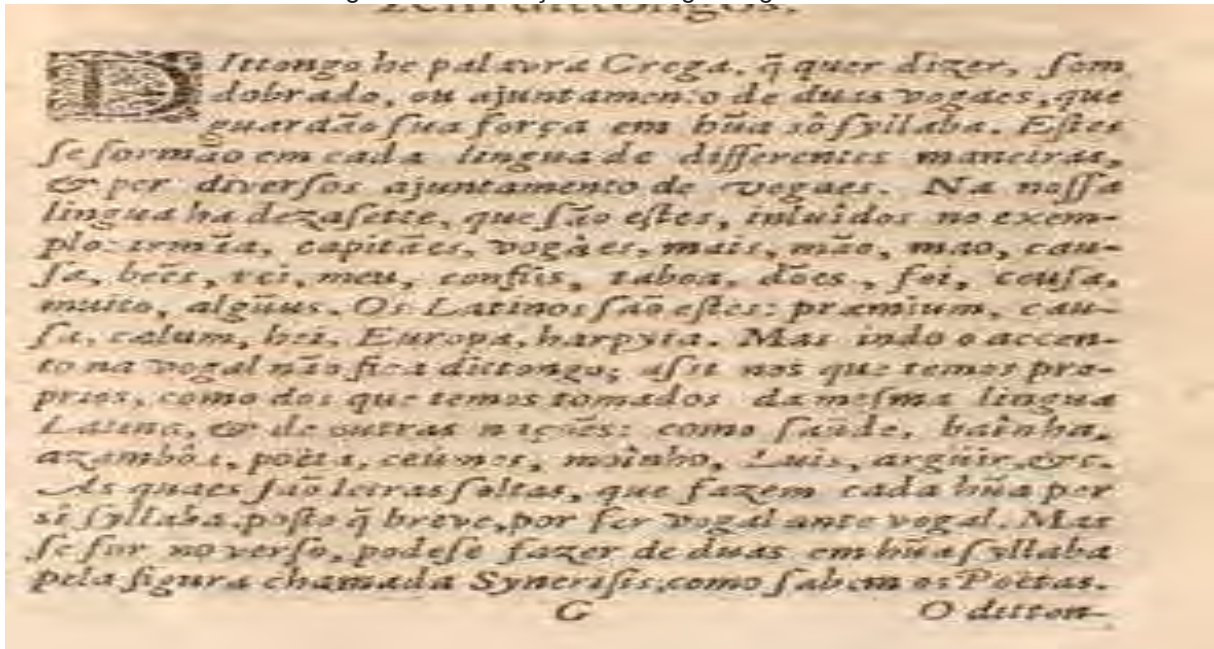 DIttongo he palavra Grega, q̃ quer dizer, ſom
dobrado, ou ajuntamento de duas vogaes, que
guardão ſua força em hũa sô ſyllaba. Eſtes
ſe formão em cada lingua de differentes maneiras,
& per diverſos ajuntamento de vogaes. Na noſſa
lingua ha dezaſette, que ſão eſtes, inluidos no exem-
plo: irmãa, capitães, vogàes, mais, mão, mao, cau-
ſa, bẽes, rei, meu, confiis, taboa, dões, foi, couſa,
muito, algũus. Os Latinos ſão eſtes: præmium, cau-
ſa, cælum, hei, Europa, harpyia. Mas indo o accen-
to na vogal não fica dittongo; aſsi nos que temos pro-
prios, como dos que temos tomados da meſma lingua
Latina, & de outras nações: como ſaúde, baînha,
poëta, moînho, Luis, argüir, &c.
As quaes ſaõ letras ſoltas, que fazem cada hũa per
si ſyllaba, poſto q̃ breve, por ſer vogal ante vogal. Mas
ſe for no verſo, podeſe fazer de duas em hũa ſyllaba
pela figura chamada Syneriſis, como ſabem os Poëtas.
G O ditton-